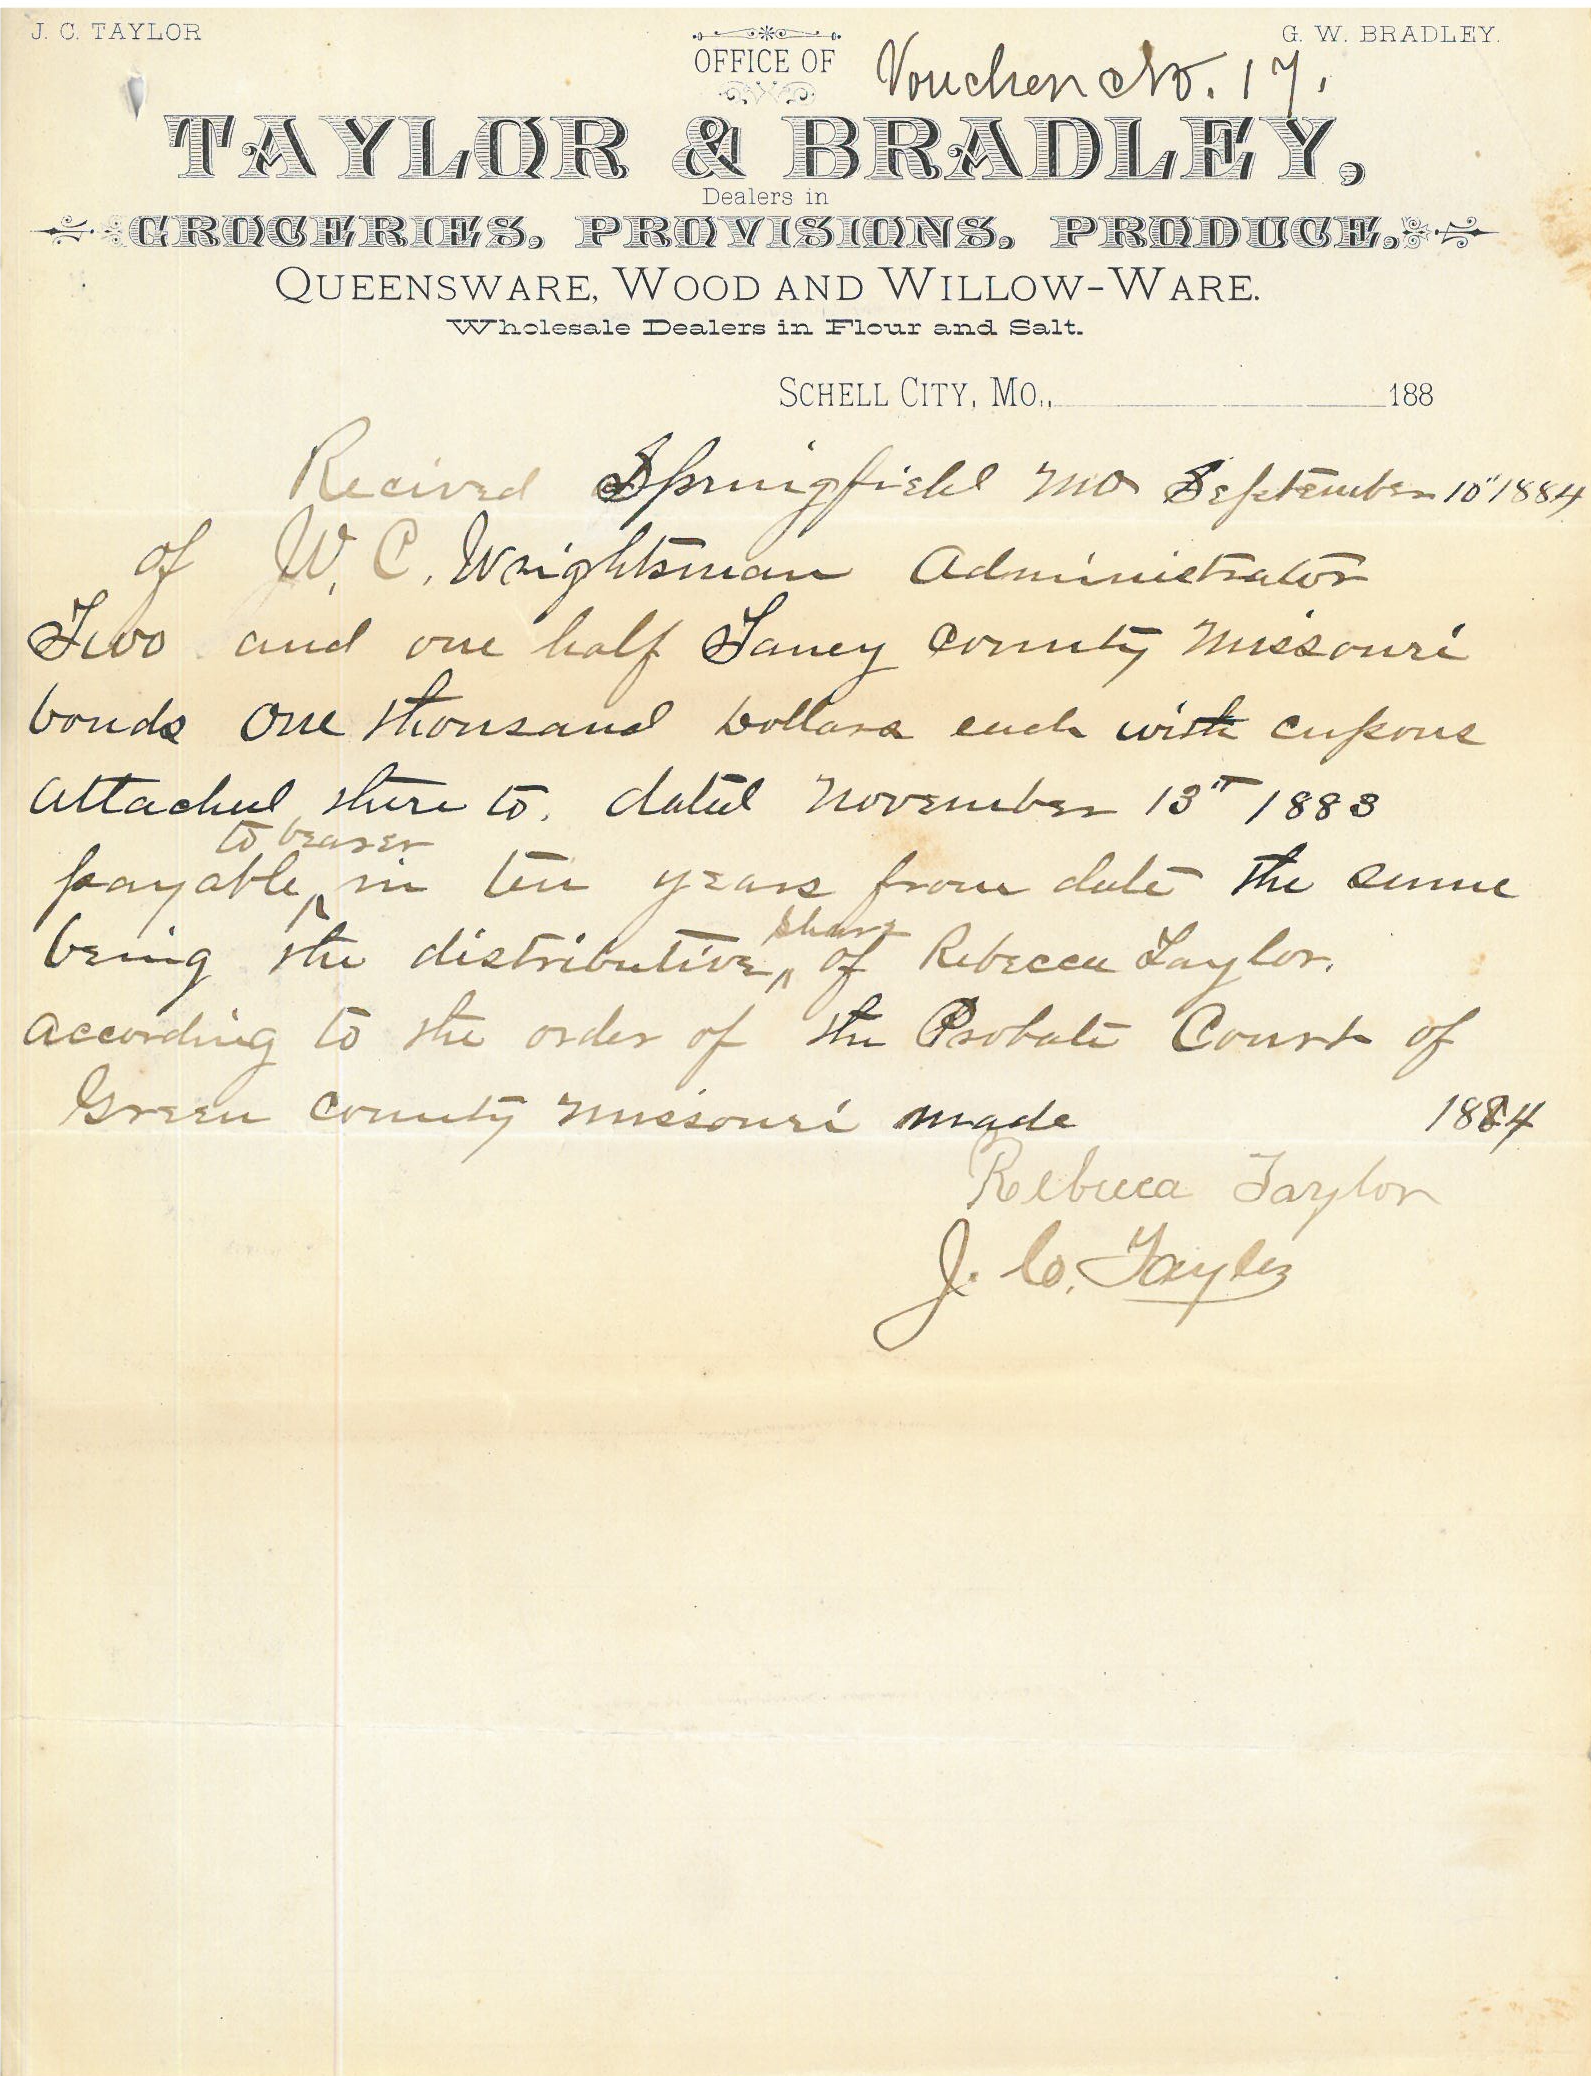 J. C. TAYLOR
G. W. BRADLEY.
OFFICE OF
Voucher No. 17.
TAYLOR & BRADLEY,
Dealers in
GROCERIES, PROVISIONS, PRODUCE,
QUEENSWARE, WOOD AND WILLOW-WARE.
Wholesale Dealers in Flour and Salt.
SCHELL CITY, MO., 188
Recived Springfield Mo September 10" 1884
of W. C. Wrightsman Administrator
Two and one half Taney County Missouri
bonds One thousand Dollars each with cupons
attached there to. dated November 13" 1883
to bearer
payable ^ in ten years from date the same
share
being the distributive ^ of Rebecca Taylor.
according to the order of the Probate Court of
Green County Missouri made 1884
Rebecca Taylor
J. C. Taylor